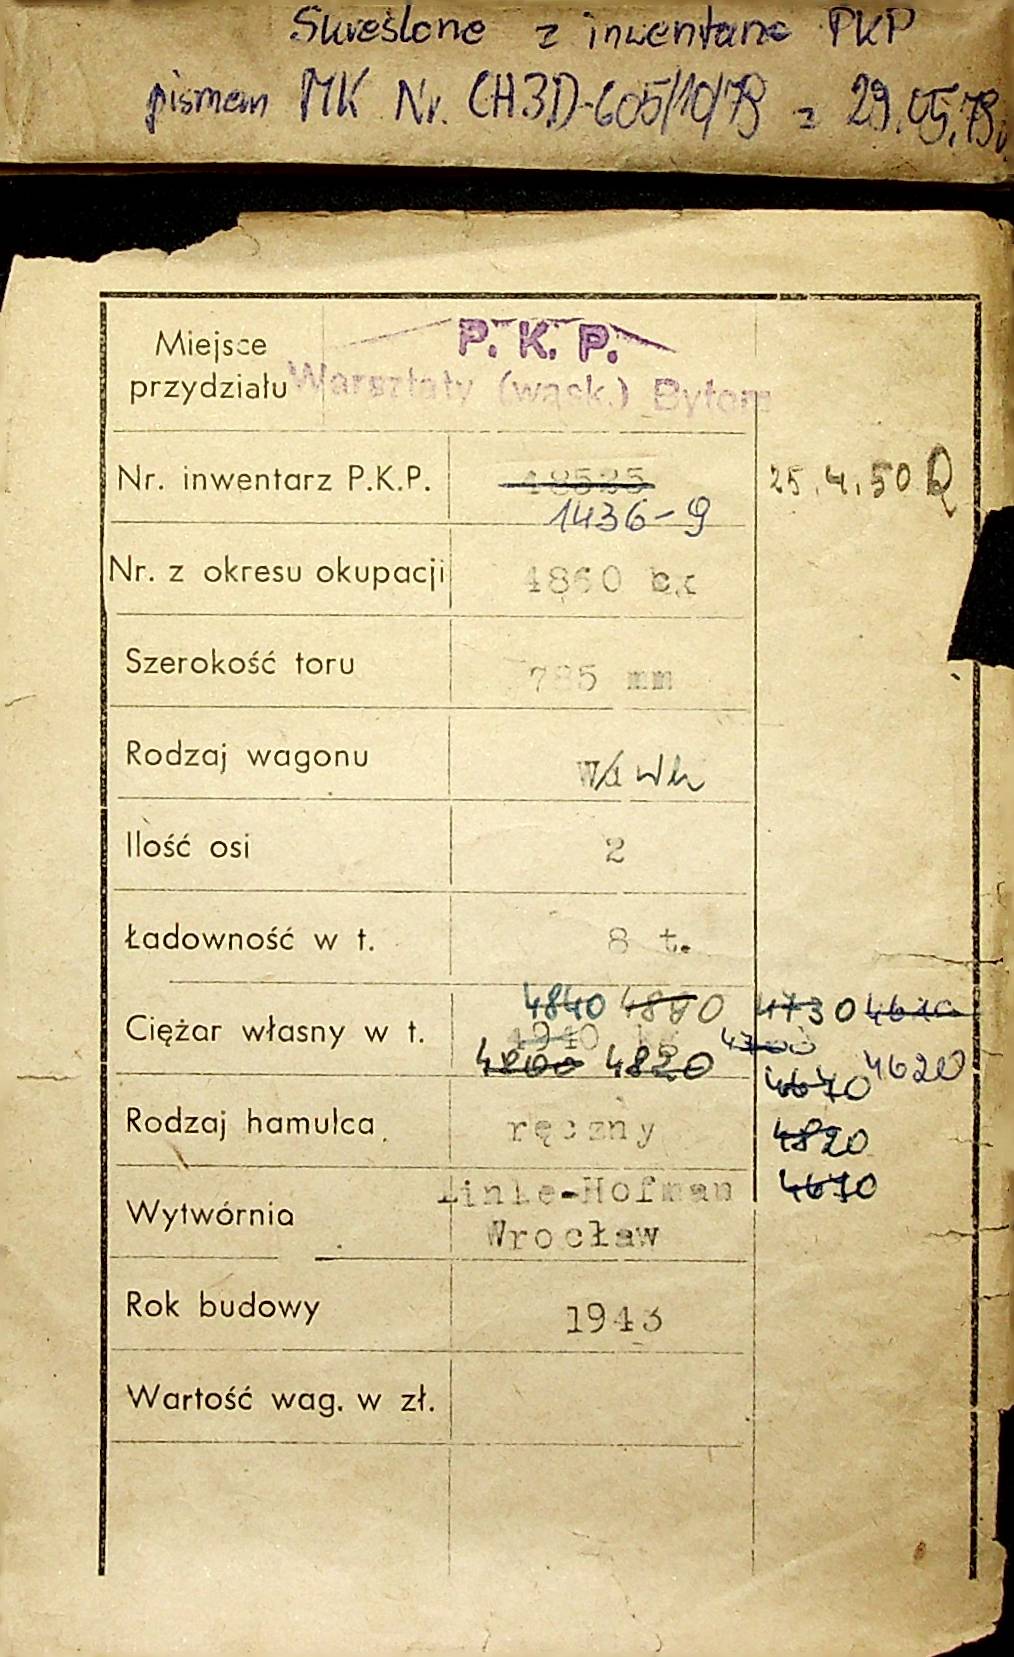 Skreślone z inwentarza PKP
pismem MK Nr. CH3D-605/10/79 z 29.05.79r.
Miejsce przydziału
P. K. P.
Warsztaty (wąsk.) Bytom
Nr. inwentarz P.K.P. 18525 25.4.50
1436-9
Nr. z okresu okupacji 4860
Szerokość toru 785 mm
Rodzaj wagonu Wd Wh
Ilość osi 2
Ładowność w t. 8 t.
4840 4880 4730 4610
Ciężar własny w t. 4940 kg 4700
4800 4820 4670 4620
Rodzaj hamulca ręczny 4820
Wytwórnia Linke-Hofman 4670
Wrocław
Rok budowy 1943
Wartość wag. w zł.